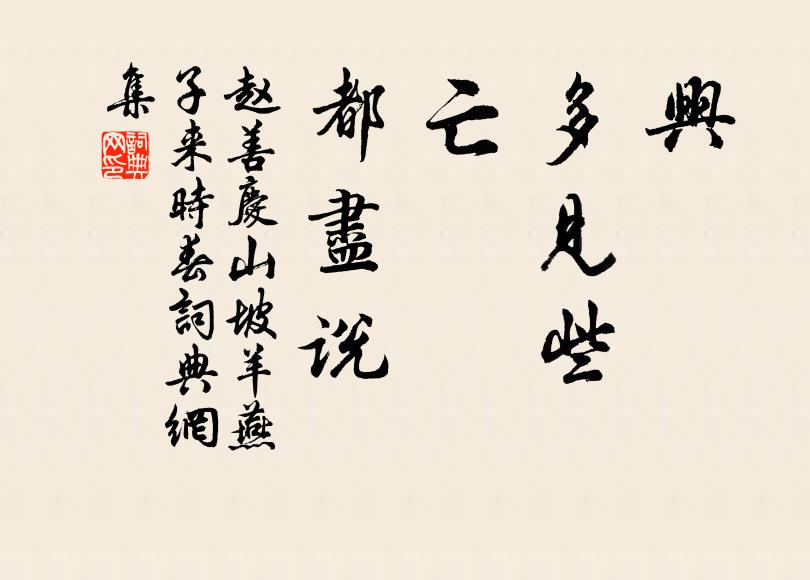 興
多見些
亡
都盡說
赵善慶山坡羊燕
子来時春詞典網
集
詞典网印